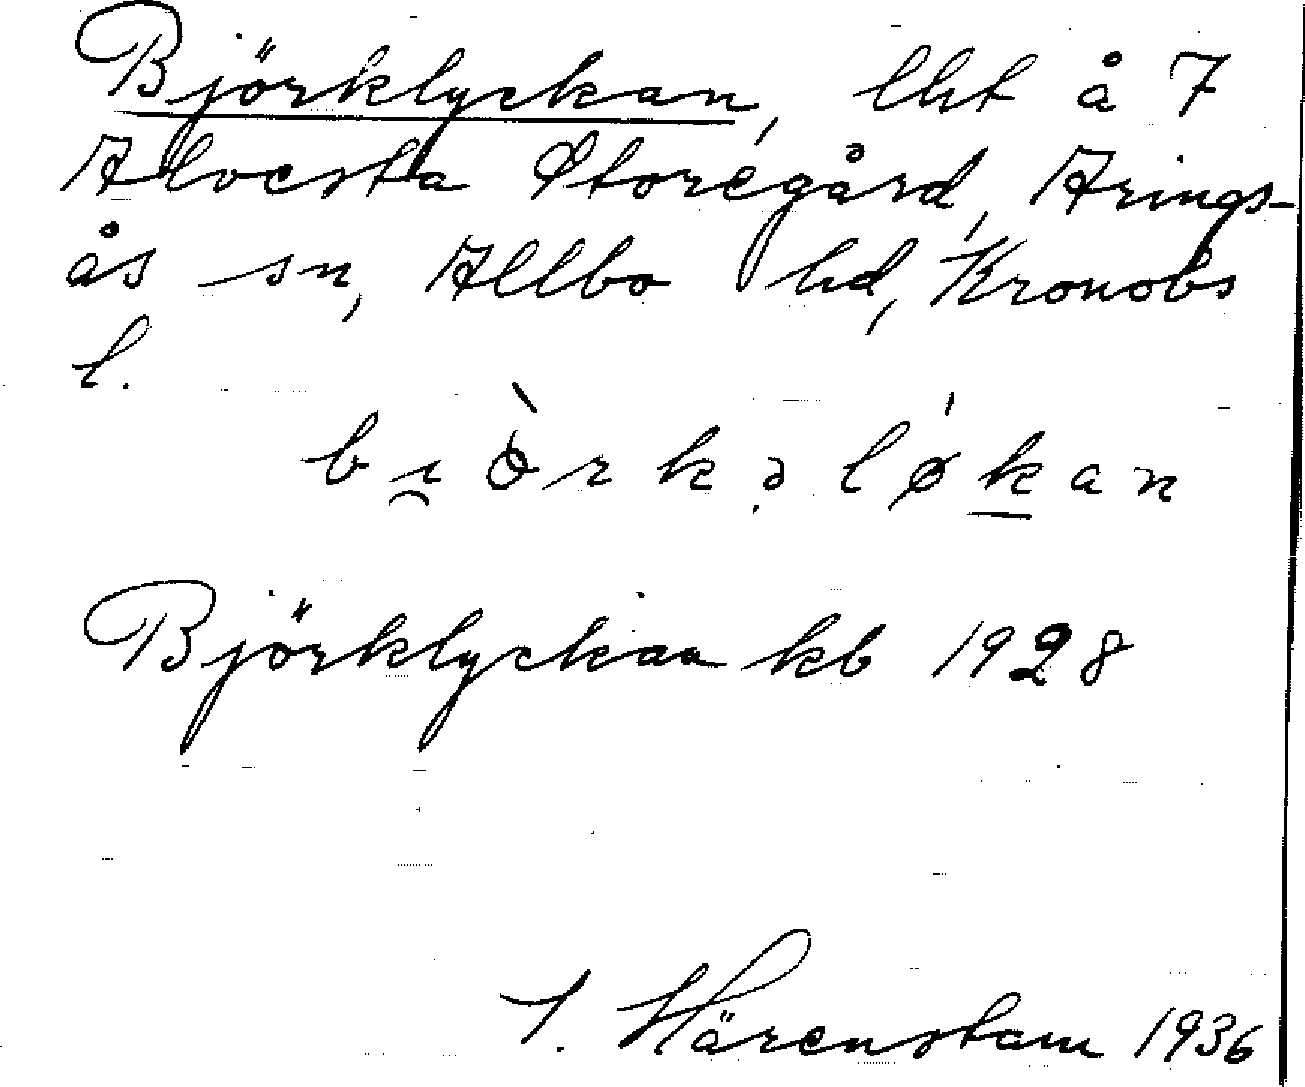 Björklyckan, lht å 7
Alvesta Storegård, Arings-
ås sn, Allbo hd, Kronobs
l.
bi̯ò̀rkəløḱan
Björklyckan kb 1928
I. Härenstam 1936